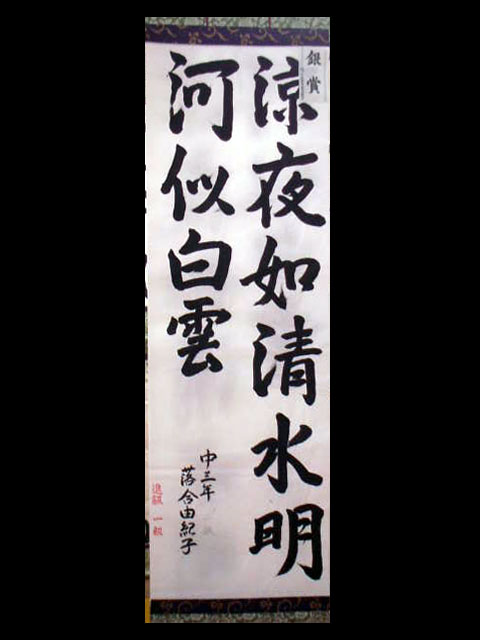 銀賞
涼夜如清水明
河似白雲
中三年
落合由紀子
進級 一級